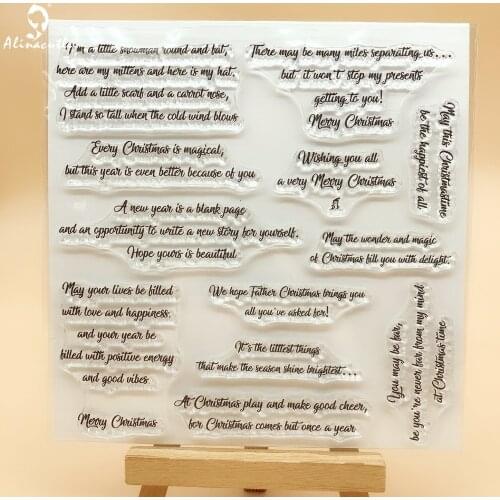 Alinacutle
I'm a little snowman round and fat,
here are my mittens and here is my hat.
Add a little scarf and a carrot nose,
I stand so tall when the cold wind blows
There may be many miles separating us....
but it won't stop my presents
getting to you!
Merry Christmas
May this Christmastime
be the happiest of all.
Every Christmas is magical,
but this year is even better because of you
Wishing you all
a very Merry Christmas
A new year is a blank page
and an opportunity to write a new story for yourself.
Hope yours is beautiful
May the wonder and magic
of Christmas fill you with delight.
May your lives be filled
with love and happiness.
and your year be
filled with positive energy
and good vibes.
Merry Christmas
We hope Father Christmas brings you
all you've asked for!
It's the littlest things
that make the season shine brightest....
At Christmas play and make good cheer,
for Christmas comes but once a year
You may be far,
but you're never far from my mind
at Christmas time